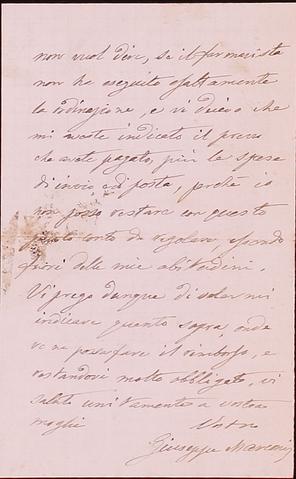 non vuol dire, se il farmacista
non ha eseguito esattamente
la ordinazione, e vi dicevo che
mi aveste indicato il prezzo
che avete pagato, più le spese
d'invio, e di posta, perchè io
non posso restare con questo
conto da regolare, essendo
fuori delle mie abitudini.
Vi prego dunque di volermi
indicare quanto sopra, onde
ve ne possa fare il rimborso, e
restandovi molto obbligato, vi
saluto unitamente a vostra
moglie
Vostro
Giuseppe Marconi